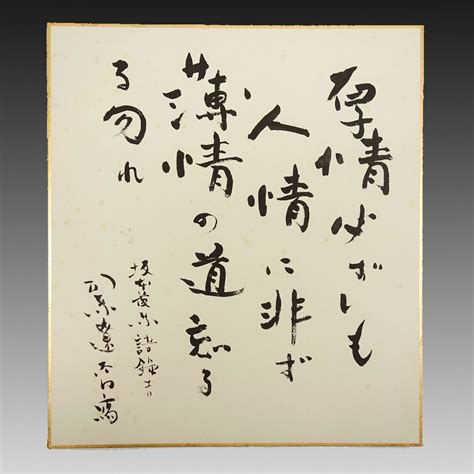 厚情必ずしも
人情に非ず
薄情の道忘る
る勿れ
坂本 語録より